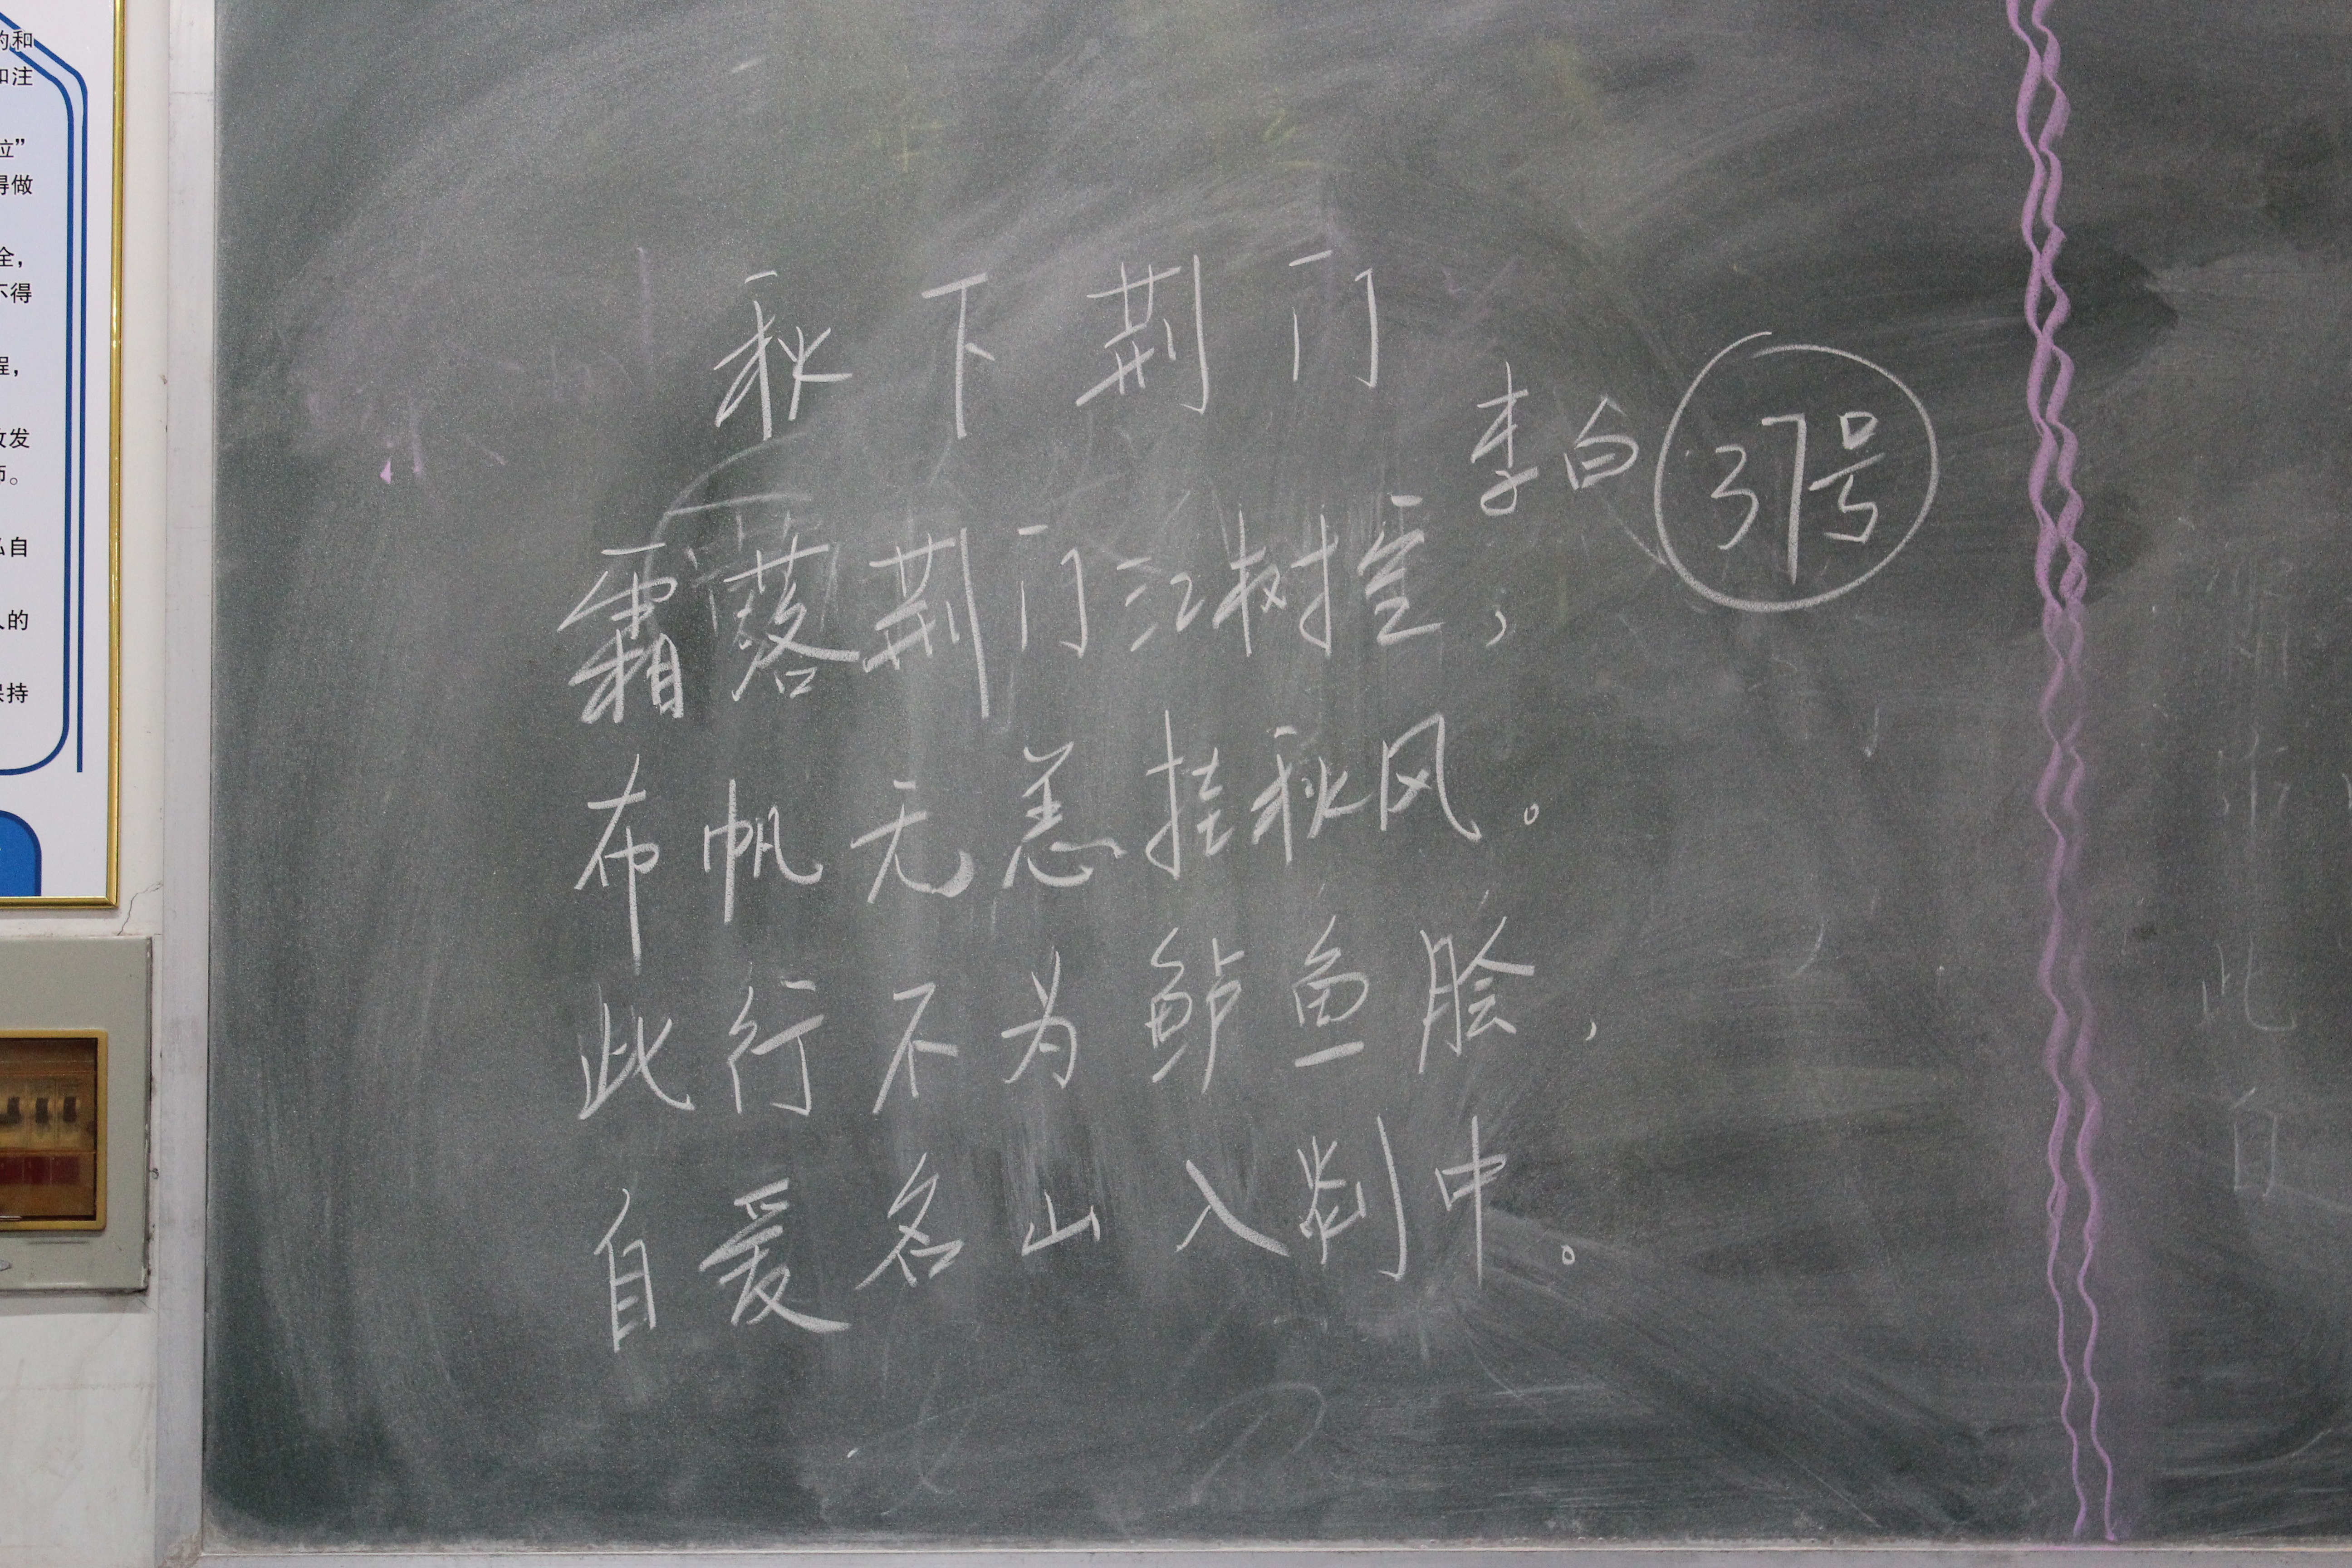 秋下荆门
李白 37号
霜落荆门江树空,
布帆无恙挂秋风。
此行不为鲈鱼脍,
自爱名山入剡中。
的和
和注
位”
得做
全,
不得
程,
发
。
自
的
保持